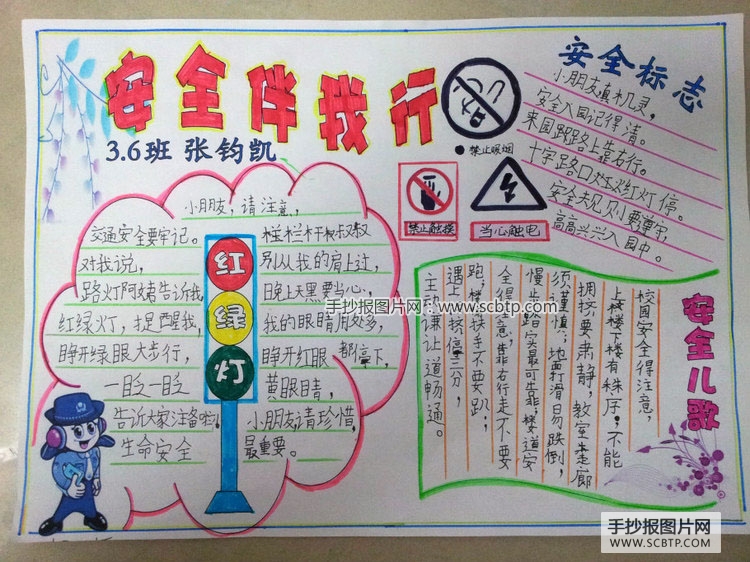 安全伴我行
3.6班 张钧凯
小朋友，请注意，
交通安全要牢记。
对我说，
路灯阿姨告诉我
红绿灯，提醒我，
睁开绿眼大步行，
一眨一眨
告诉大家注意啦！
生命安全
红
绿
灯
栏杆叔叔
别从我的肩上过，
晚上天黑要当心，
我的眼睛用处多，
睁开红眼都停下，
黄眼睛，
小朋友请珍惜，
最重要。
●禁止吸烟
禁止触摸
当心触电
安全标志
小朋友真机灵，
安全入园记得清。
来园路上靠右行。
十字路口红灯停。
安全规则要遵守，
高高兴兴入园中。
安全儿歌
校园安全得注意，
上楼下楼有秩序；不能
拥挤要肃静，教室走廊
须谨慎；地面打滑易跌倒，
慢步踏实最可靠；楼道安
全得注意，靠右行走不要
跑；楼梯扶手不要趴；
遇上拥挤停三分，
主动谦让道畅通。
手抄报图片网：www.scbtp.com
手抄报图片网
WWW.SCBTP.COM